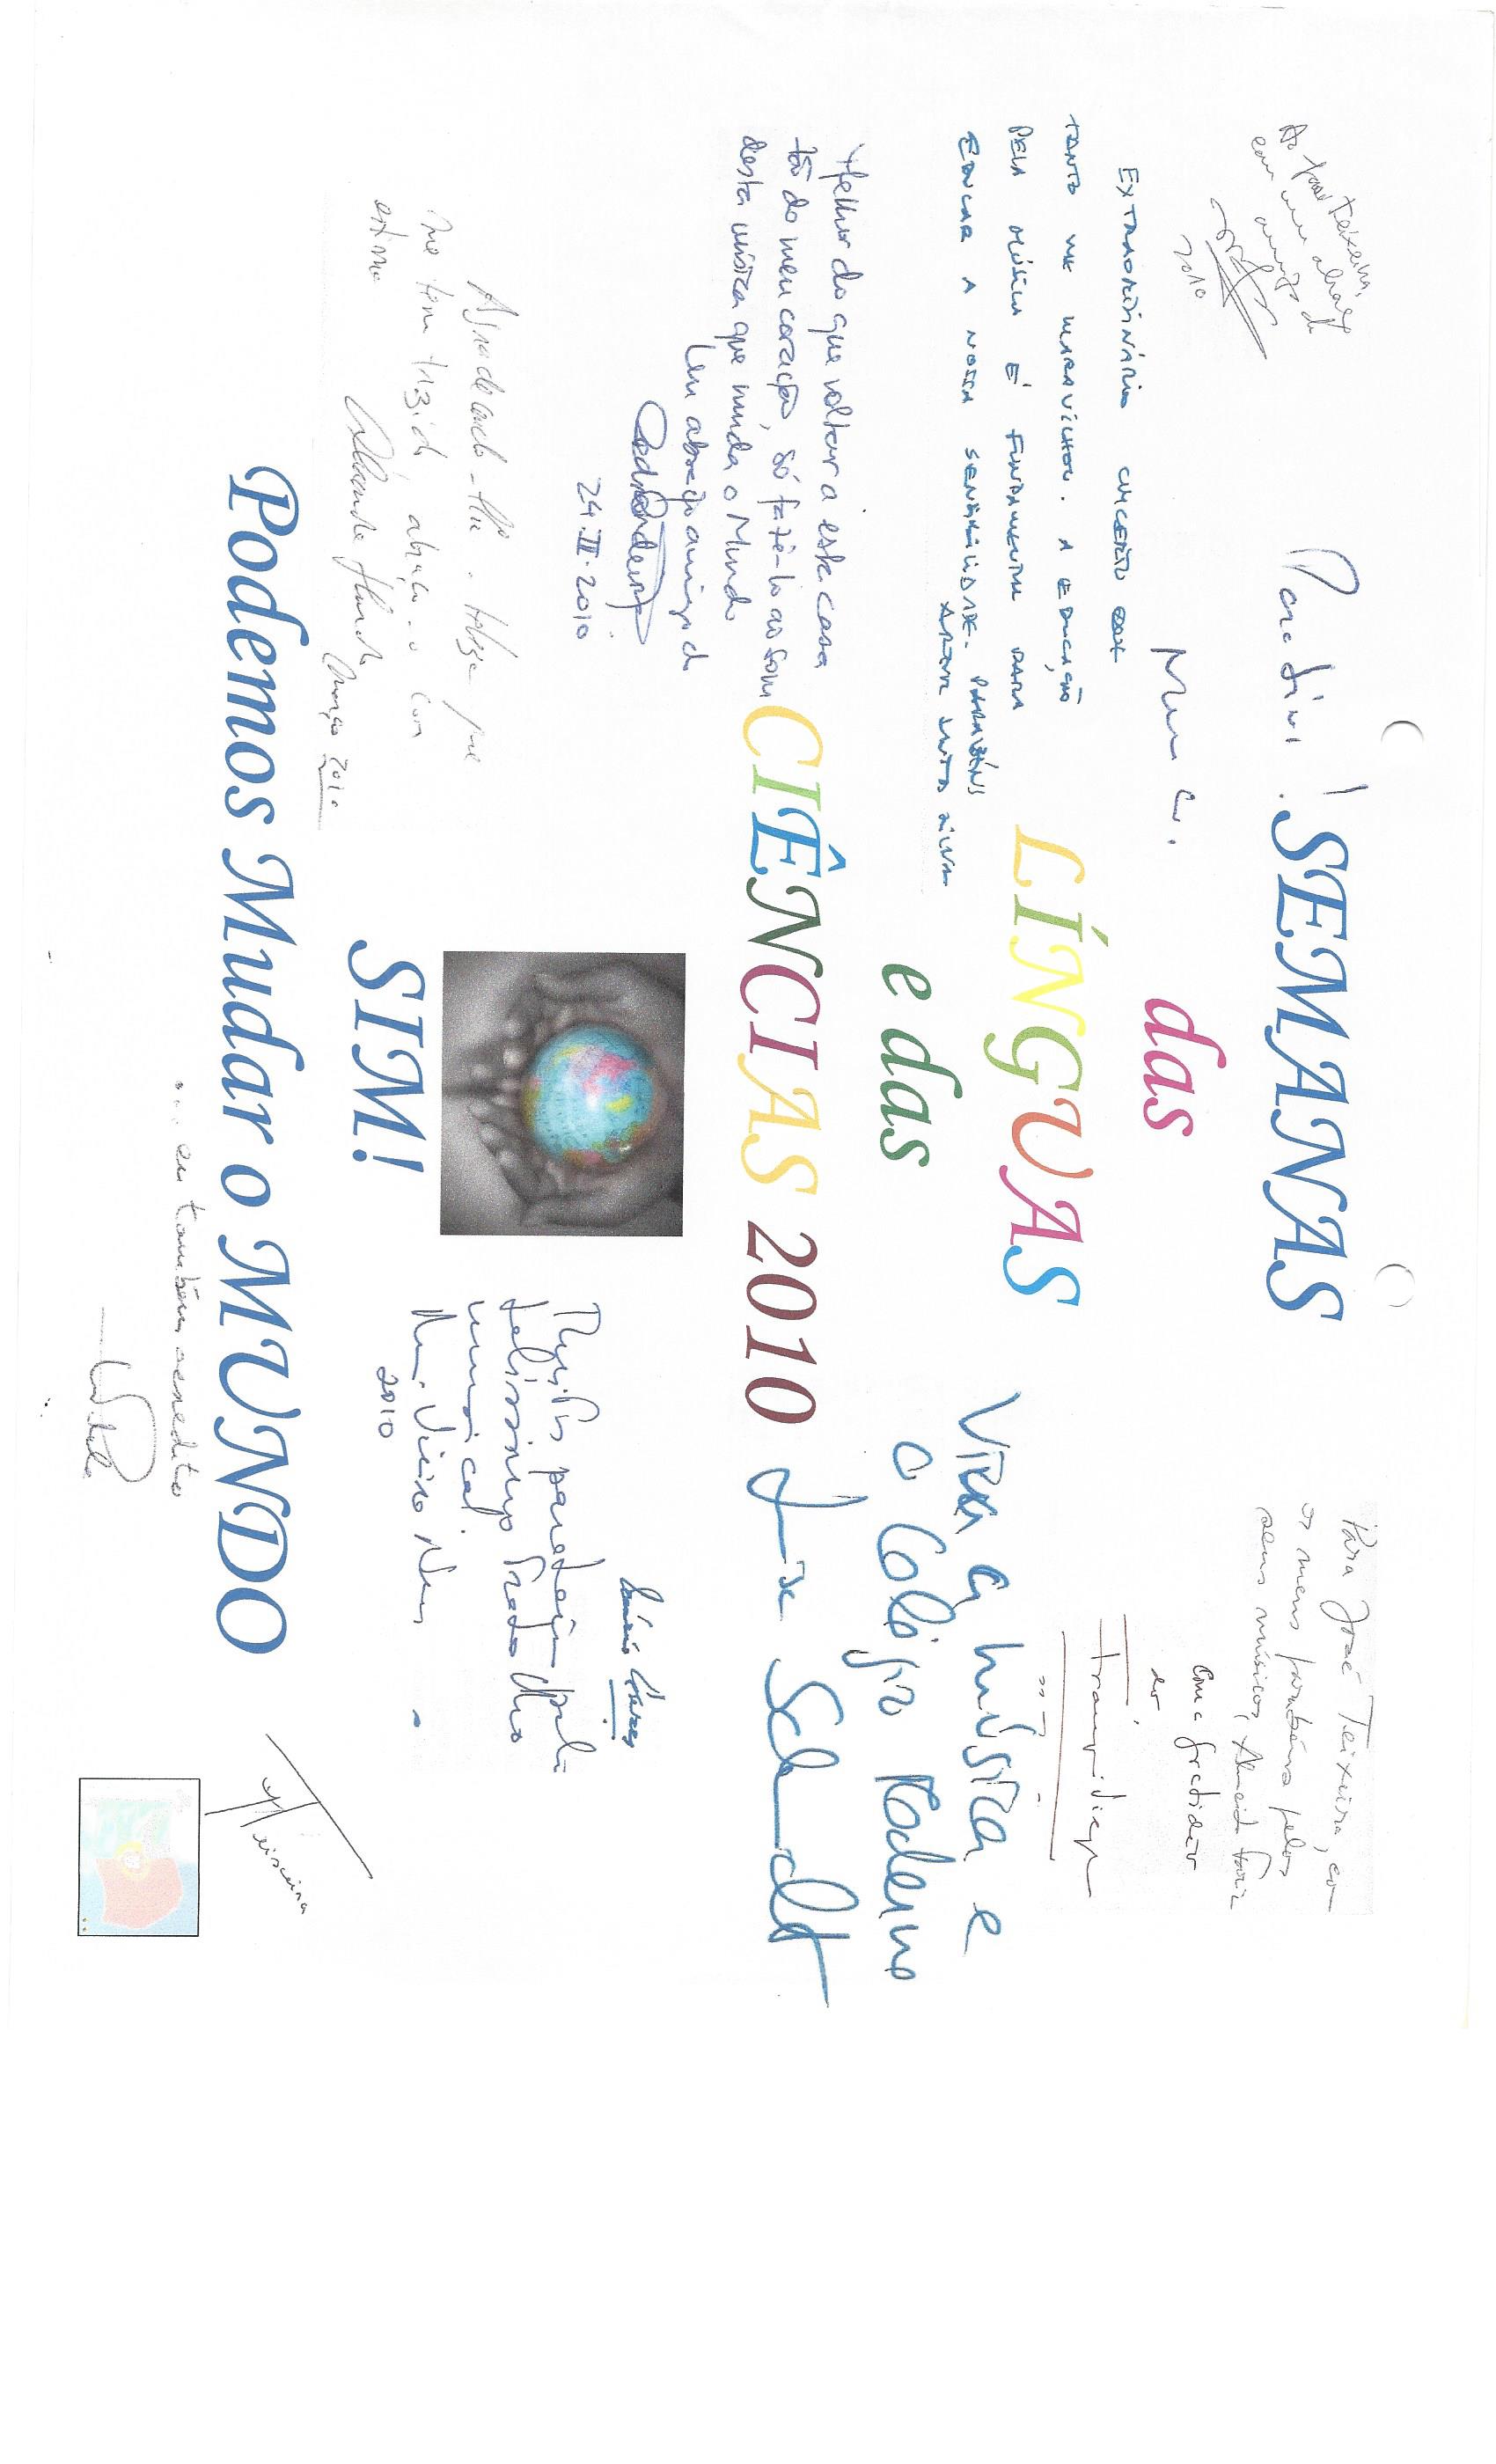 Ao José Teixeira,
com um abraço
amigo do
2010
!
SEMANAS
das
LÍNGUAS
e das
CIÊNCIAS 2010
Para José Teixeira, co
os meus parabéns pelos
seus músicos, Almeida Faria
Com a gratidão
do
EXTRAORDINÁRIO CONCERTO QUE
TANTO ME MARAVILHOU. A EDUCAÇÃO
PELA MÚSICA É FUNDAMENTAL PARA
EDUCAR A NOSSA SENSIBILIDADE. PARABÉNS
ARTUR SANTOS SILVA
Viva a música e
o Colégio Moderno
Schmidt
Melhor do que voltar a esta casa
tão do meu coração, só fazê-lo ao som
desta música que muda o Mundo
Um abraço amigo do
24.II.2010
Mário Soares
Muitos parabéns pelo
belíssimo trabalho
musical.
Vieira Nery
2010
Agradecendo-lhe a beleza que
me tem trazido, abraça-o com
estima
Março 2010
SIM!
Podemos Mudar o MUNDO
... eu também acredito
Teixeira